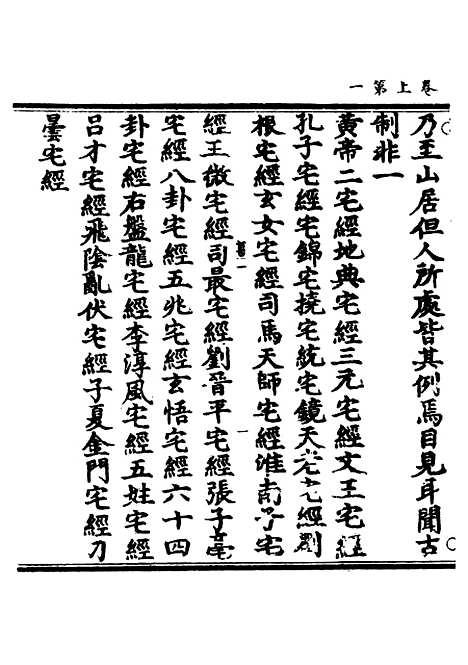 卷上第一
乃至山居但人所處皆其例焉目見耳聞古
制非一
黃帝二宅經地典宅經三元宅經文王宅經
孔子宅經宅錦宅撓宅統宅鏡天老宅經劉
根宅經玄女宅經司馬天師宅經淮南子宅
經王微宅經司最宅經劉晉平宅經張子毫
宅經八卦宅經五兆宅經玄悟宅經六十四
卦宅經右盤龍宅經李淳風宅經五姓宅經
呂才宅經飛陰亂伏宅經子夏金門宅經刀
曇宅經
一